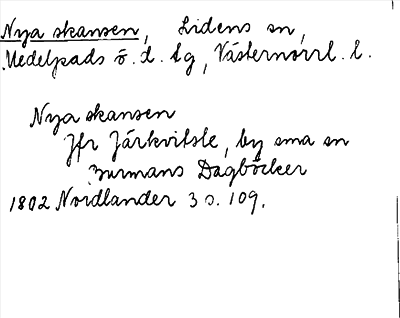 Nya skansen, Lidens sn,
Medelpads ö. d. tg, Västernorrl. l.
Nya skansen
Jfr Järkvitsle, by sma sn
Burmans Dagböcker
1802 Nordlander 3 s. 109.